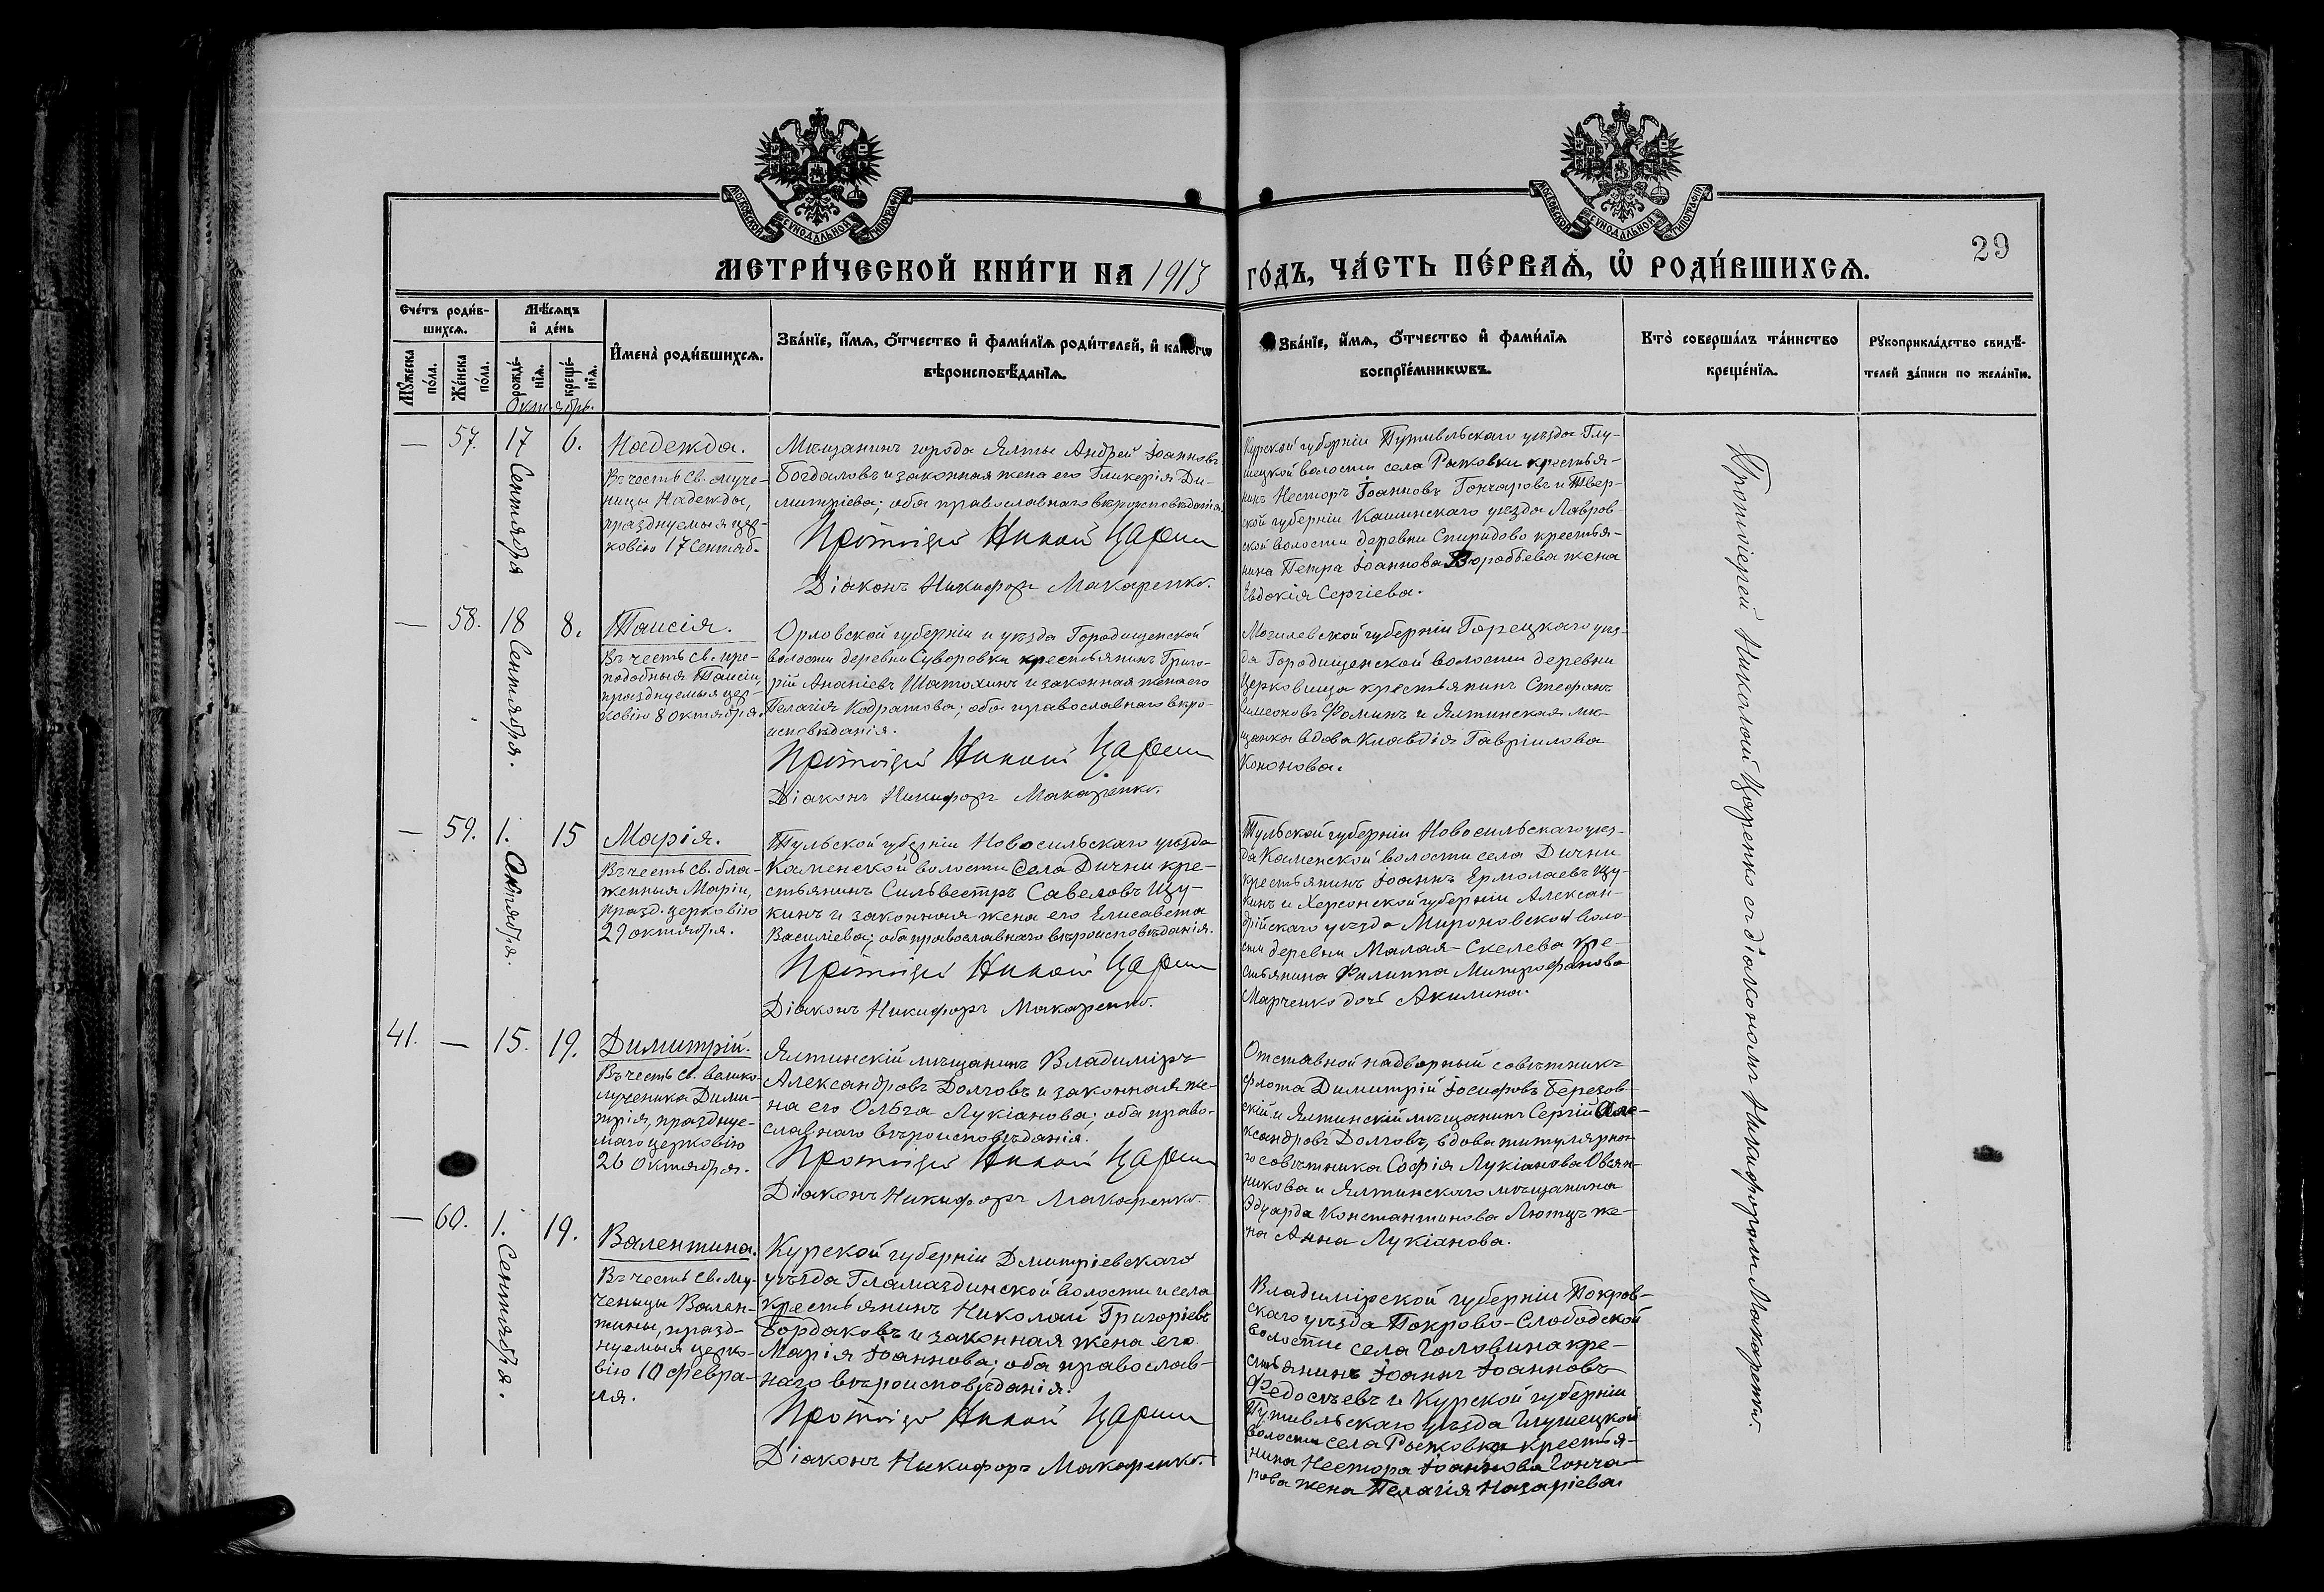 МОСКОВСКОЙ СѴНОДАЛЬНОЙ ТИПОГРАФІИ
МОСКОВСКОЙ СѴНОДАЛЬНОЙ ТИПОГРАФІИ
29
МЕТРИ́ЧЕСКОЙ КНИ́ГИ НА 1913 ГО́ДЪ, ЧА́СТЬ ПЕ́РВАѦ, Ѽ РОДИ́ВШИХСѦ.
Сче́тъ роди́в-
шихсѧ.
Мꙋ́жеска по́ла.
Же́нска по́ла.
Мѣ́сѧцъ
и҆ де́нь
рожде́-нїѧ.
креще́-нїѧ.
И҆мена̀ роди́вшихсѧ.
Зва́нїе, и҆́мѧ, ѻ҆́тчество и҆ фами́лїѧ роди́телей, и҆ како́гѡ
вѣроисповѣ́данїѧ.
Зва́нїе, и҆́мѧ, ѻ҆́тчество и҆ фами́лїѧ
воспрїе́мникѡвъ.
Кто̀ соверша́лъ та́инство
креще́нїѧ.
Рꙋкоприкла́дство свидѣ́-
телей за́писи по жела́нїю.
Октябрь.
— 57. 17 Сентября 6.
Надежда.
Въ честь св. муче-
ницы Надежды,
празднуемыя цер-
ковію 17 Сентяб.
Мѣщанинъ города Ялты Андрей Іоанновъ
Богдаловъ и законная жена его Гликерія Ди-
митріева; оба православнаго вѣроисповѣданія.
Протоіерей Николай Царен
Діаконъ Никифоръ Макаренко.
Курской губерніи Путивльскаго уѣзда Глу-
шецкой волости села Рыжовки крестья-
нинъ Несторъ Іоанновъ Гончаровъ и Твер-
ской губерніи Кашинскаго уѣзда Лавров-
ской волости деревни Спиридово крестья-
нина Петра Іоаннова Воробьева жена
Евдокія Сергіева.
Протоіерей Николай Царенко съ діакономъ Никифоромъ Макаренко.
— 58. 18 Сентября. 8.
Таисія.
Въ честь св. пре-
подобныя Таисіи,
празднуемыя цер-
ковію 8 Октября.
Орловской губерніи и уѣзда Городищенской
волости деревни Суворовки крестьянинъ Григо-
рій Ананіевъ Шатохинъ и законная жена его
Пелагія Кодратова; оба православнаго вѣро-
исповѣданія.
Протоіерей Николай Царен
Діаконъ Никифоръ Макаренко.
Могилевской губерніи Горецкаго уѣз-
да Городищенской волости деревни
Церковища крестьянинъ Стефанъ
Симеоновъ Фоминъ и Ялтинская мѣ-
щанка вдова Клавдія Гавріилова
Кононова.
— 59. 1. Октября. 15
Марія.
Въ честь св. бла-
женныя Маріи,
празд. церковію
29 октября.
Тульской губерніи Новосильскаго уѣзда
Каменской волости Села Дични кре-
стьянинъ Сильвестръ Савеловъ Щу-
кинъ и законная жена его Елисавета
Василіева; оба православнаго вѣроисповѣданія.
Протоіерей Николай Царен
Діаконъ Никифоръ Макаренко.
Тульской губерніи Новосильскаго уѣз-
да Каменской волости села Дични
крестьянинъ Іоаннъ Ермолаевъ Щу-
кинъ и Херсонской губерніи Алексан-
дрійскаго уѣзда Мироновской воло-
сти деревни Малая-Скелева кре-
стьянина Филиппа Митрофанова
Марченко дочь Акилина.
41. — 15. 19.
Димитрій.
Въ честь св. велико-
мученика Дими-
трія, празднуе-
маго церковію
26 Октября.
Ялтинскій мѣщанинъ Владиміръ
Александровъ Долговъ и законная же-
на его Ольга Лукіанова; оба право-
славнаго вѣроисповѣданія.
Протоіерей Николай Царен
Діаконъ Никифоръ Макаренко.
Отставной надворный совѣтникъ
флота Димитрій Іосифовъ Березов-
скій и Ялтинскій мѣщанинъ Сергій Але-
ксандровъ Долговъ, вдова титулярна-
го совѣтника Софія Лукіанова Овсян-
никова и Ялтинскаго мѣщанина
Эдуарда Константинова Лютцъ же-
на Анна Лукіанова.
— 60. 1. Сентября. 19.
Валентина.
Въ честь Св. Му-
ченицы Вален-
тины, празд-
нуемыя церко-
вію 10 февра-
ля.
Курской губерніи Дмитріевскаго
уѣзда Гламаздинской волости и села
крестьянинъ Николай Григоріевъ
Бордаковъ и законная жена его
Марія Іоаннова; оба православ-
наго вѣроисповѣданія.
Протоіерей Николай Царен
Діаконъ Никифоръ Макаренко.
Владимірской губерніи Покров-
скаго уѣзда Покрово-Слободской
волости села Головина кре-
стьянинъ Іоаннъ Іоанновъ
Федосѣевъ и Курской губерніи
Путивльскаго уѣзда Глушецкой
волости села Рыжовки крестья-
нина Нестора Іоаннова Гонча-
рова жена Пелагія Назаріева